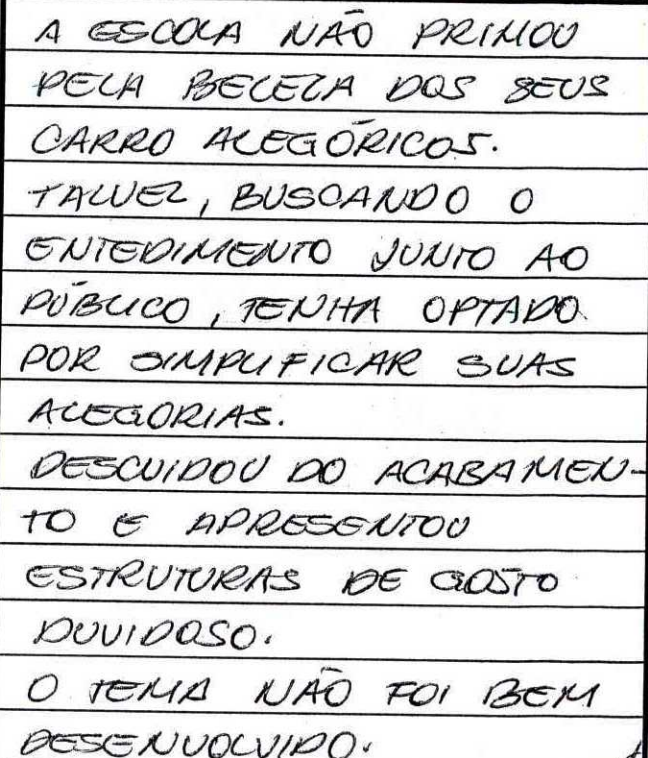 A ESCOLA NÃO PRIMOU
PELA BELEZA DOS SEUS
CARRO ALEGÓRICOS.
TALVEZ, BUSCANDO O
ENTEDIMENTO JUNTO AO
PÚBLICO, TENHA OPTADO
POR SIMPLIFICAR SUAS
ALEGORIAS.
DESCUIDOU DO ACABAMEN-
TO E APRESENTOU
ESTRUTURAS DE GOSTO
DUVIDOSO.
O TEMA NÃO FOI BEM
DESENVOLVIDO.